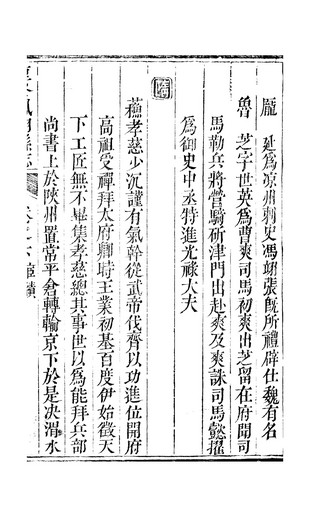 龐 延爲凉州刺史馮翊張旣所禮辟仕魏有名
魯 芝字世英爲曹爽司馬初爽出芝留在府聞司
馬勒兵將營騎斫津門出赴爽及爽誅司馬懿擢
爲御史中丞特進光祿大夫
隋
蘓孝慈少沉謹有氣幹從武帝伐齊以功進位開府
高祖受禪拜太府卿時王業初基百度伊始徵天
下工匠無不畢集孝慈總其事世以爲能拜兵部
尚書上於陜州置常平倉轉輸京下於是决渭水